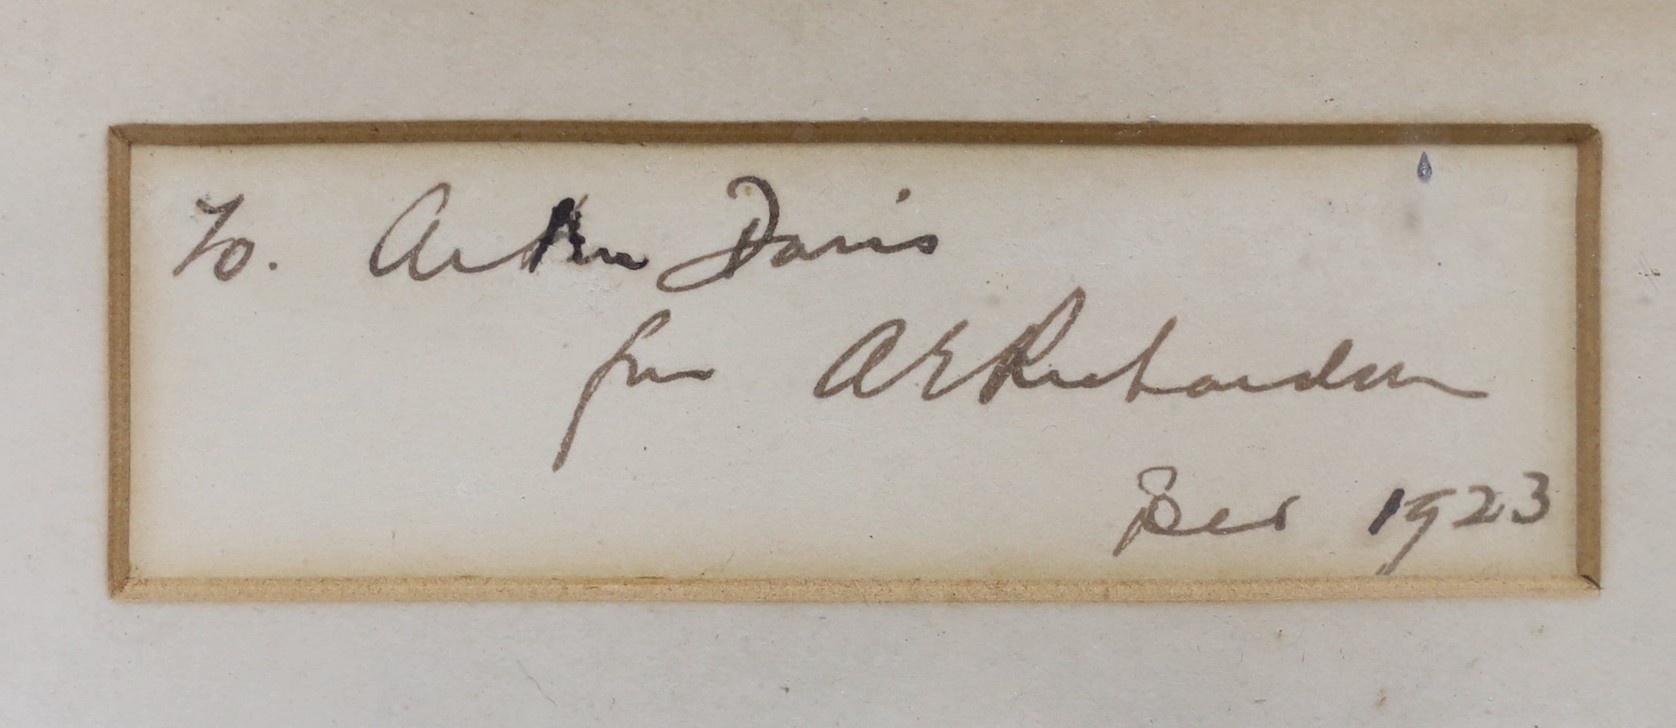 To. Arthur Davis
from A E Richardson
Dec 1923